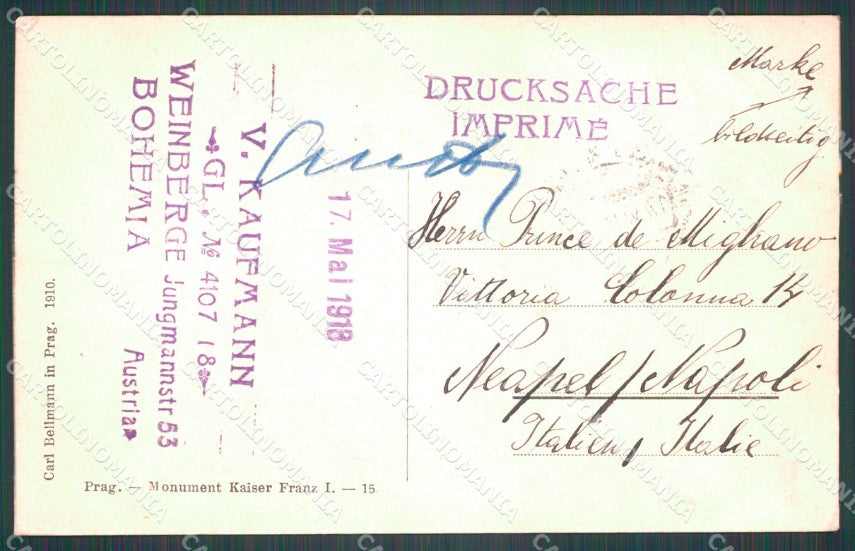 Carl Bellmann in Prag. 1910.
V. KAUFMANN
GL. № 4107 18
WEINBERGE Jungmannstr 53
BOHEMIA
Austria
17. Mai 1913
Prag. — Monument Kaiser Franz I. — 15
DRUCKSACHE
IMPRIMÉ
Marke
bildseitig
Herrn Prince de Mighano
Vittoria Colonna 14
Neapel / Napoli
Italien, Italie
CARTOLINOMANIA